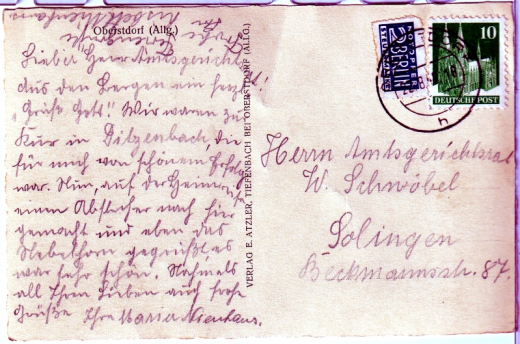 Oberstdorf (Allg.)
Lieber Herr Amtsgerichtsrat!
aus den Bergen ein herzl.
"Grüß Gott"! Wir waren zur
Kur in Ditzenbach, die
für mich von schönem Erfolg
war. Nun, auf der Heimreise
einen Abstecher nach hier
gemacht und eben das
Nebelhorn gegrüßt, es
war sehr schön. Nochmals
all Ihren Lieben auch frohe
Grüße Ihre Maria
VERLAG E. ATZLER, TIEFENBACH BEI OBERSTDORF (ALLG.)
NOTOPFER
2 BERLIN
STEUERMARKE
10
DEUTSCHE POST
Herrn Amtsgerichtsrat
W. Schwöbel
Solingen
Beckmannstr. 87.